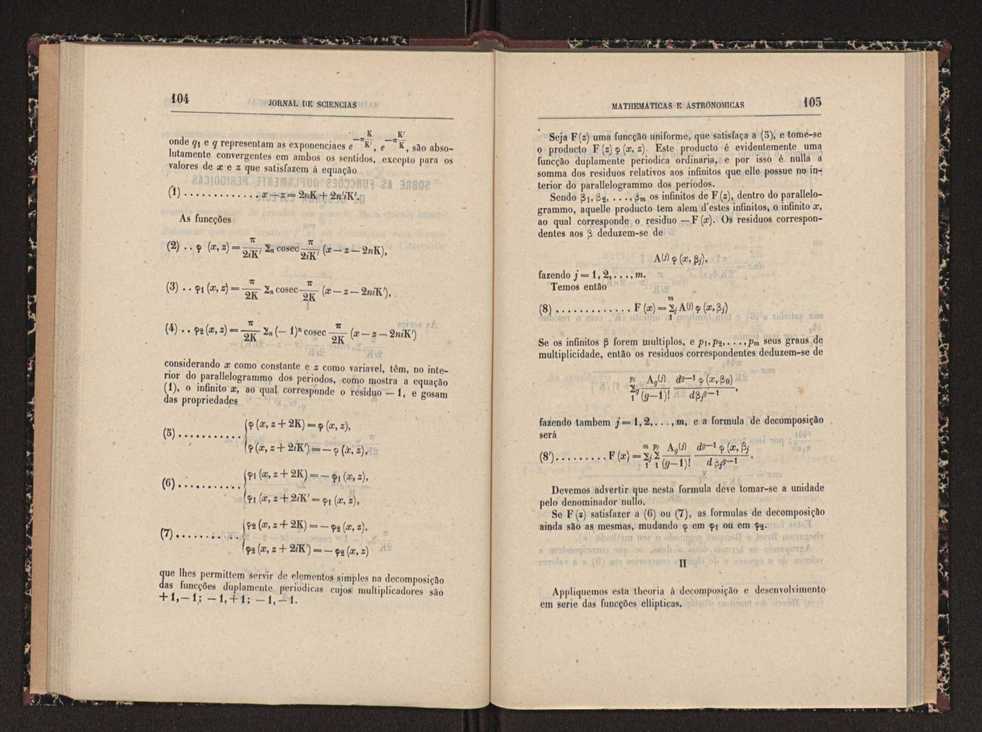 104
JORNAL DE SCIENCIAS
onde q₁ e q representam as exponenciaes e^{−π K/K′}, e^{−π K′/K}, são abso-
lutamente convergentes em ambos os sentidos, excepto para os
valores de x e z que satisfazem á equação
(1) . . . . . . . . . . . . . x − z = 2nK + 2n′iK′.
As funcções
(2) . . φ (x, z) = π/2iK′ Σₙ cosec π/2iK′ (x − z − 2nK),
(3) . . φ₁ (x, z) = π/2K Σₙ cosec π/2K (x − z − 2niK′),
(4) . . φ₂ (x, z) = π/2K Σₙ (− 1)ⁿ cosec π/2K (x − z − 2niK′)
considerando x como constante e z como variavel, têm, no inte-
rior do parallelogrammo dos periodos, como mostra a equação
(1), o infinito x, ao qual corresponde o residuo − 1, e gosam
das propriedades
(5) . . . . . . . . . . . { φ (x, z + 2K) = φ (x, z),
φ (x, z + 2iK′) = − φ (x, z),
(6) . . . . . . . . . . . { φ₁ (x, z + 2K) = − φ₁ (x, z),
φ₁ (x, z + 2iK′ = φ₁ (x, z),
(7) . . . . . . . . . . . { φ₂ (x, z + 2K) = − φ₂ (x, z),
φ₂ (x, z + 2iK′) = − φ₂ (x, z)
que lhes permittem servir de elementos simples na decomposição
das funcções duplamente periodicas cujos multiplicadores são
+ 1, − 1; − 1, + 1; − 1, − 1.
MATHEMATICAS E ASTRONOMICAS
105
Seja F (z) uma funcção uniforme, que satisfaça a (5), e tome-se
o producto F (z) φ (x, z). Este producto é evidentemente uma
funcção duplamente periodica ordinaria, e por isso é nulla a
somma dos residuos relativos aos infinitos que elle possue no in-
terior do parallelogrammo dos periodos.
Sendo β₁, β₂, . . . , βₘ os infinitos de F (z), dentro do parallelo-
grammo, aquelle producto tem alem d'estes infinitos, o infinito x,
ao qual corresponde o residuo − F (x). Os residuos correspon-
dentes aos β deduzem-se de
A⁽ʲ⁾ φ (x, βⱼ),
fazendo j = 1, 2, . . . , m.
Temos então
(8) . . . . . . . . . . . . F (x) = Σⱼ₁ᵐ A⁽ʲ⁾ φ (x, βⱼ)
Se os infinitos β forem multiplos, e p₁, p₂, . . . , pₘ seus graus de
multiplicidade, então os residuos correspondentes deduzem-se de
Σ_g₁^{pⱼ} A_g⁽ʲ⁾/(g−1)! d^{g−1} φ (x, βⱼ)/dβⱼ^{g−1},
fazendo tambem j = 1, 2, . . . , m, e a formula de decomposição
será
(8′) . . . . . . . . . F (x) = Σⱼ₁ᵐ Σ₁^{pⱼ} A_g⁽ʲ⁾/(g−1)! d^{g−1} φ (x, βⱼ/d βⱼ^{g−1}.
Devemos advertir que nesta formula deve tomar-se a unidade
pelo denominador nullo.
Se F (z) satisfazer a (6) ou (7), as formulas de decomposição
ainda são as mesmas, mudando φ em φ₁ ou em φ₂.
II
Appliquemos esta theoria á decomposição e desenvolvimento
em serie das funcções ellipticas.